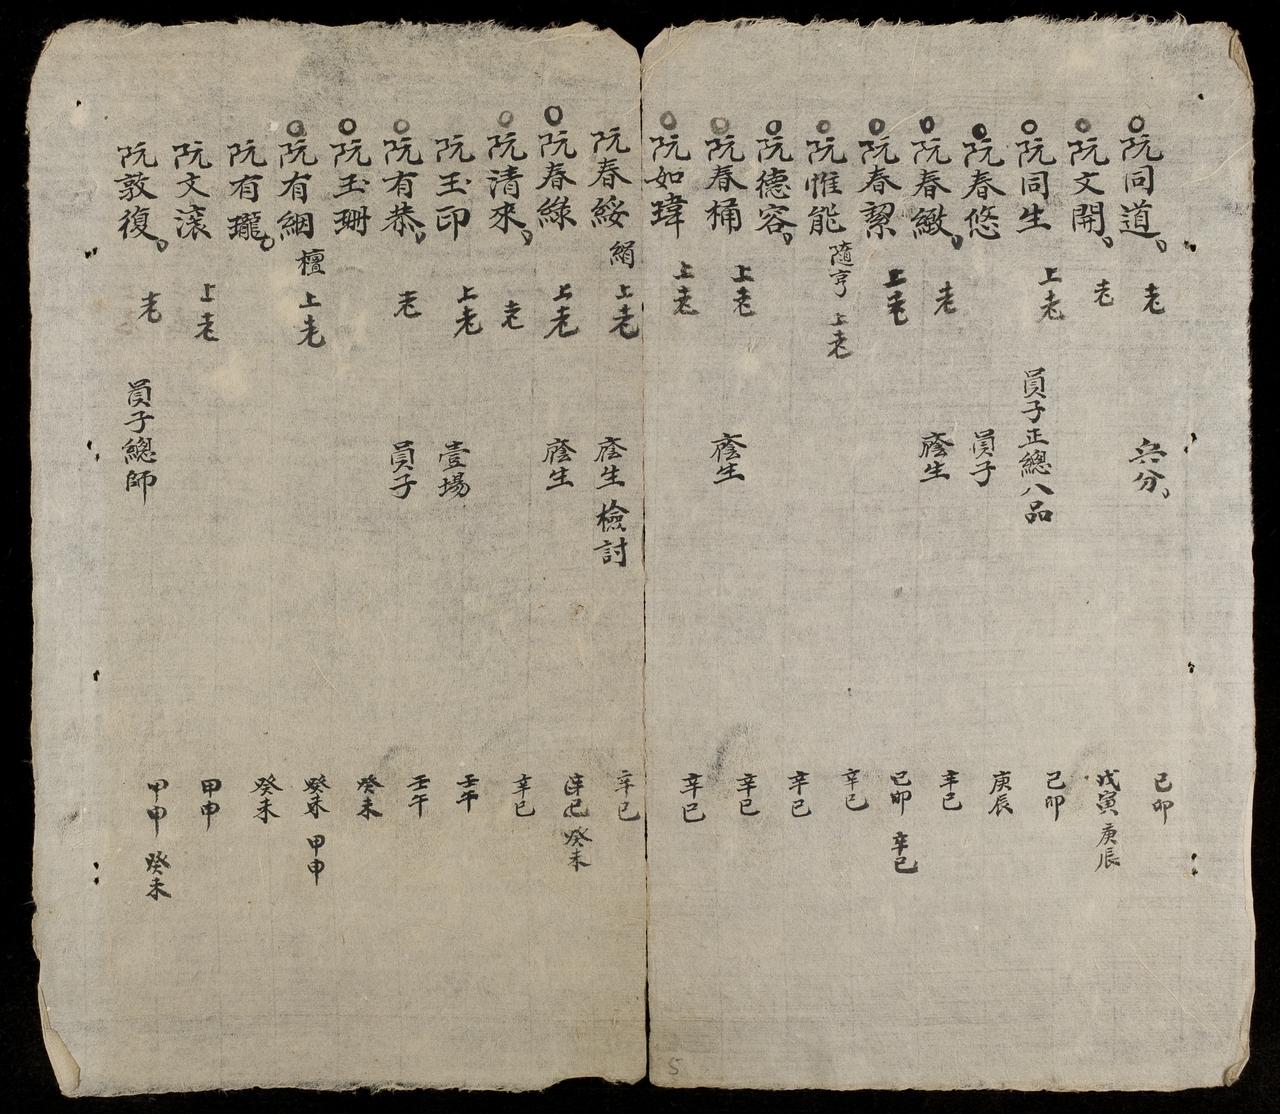 阮同道 老 兵分 己卯
阮文開 老 戊寅 庚辰
阮同生 上老 員子正總八品 己卯
阮春悠 員子 庚辰
阮春緻 老 廕生 辛巳
阮春絜 上老 己卯 辛巳
阮惟能 隨亨 上老 辛巳
阮德容 辛巳
阮春桶 上老 廕生 辛巳
阮如瑋 上老 辛巳
阮春綏 絹 上老 廕生 檢討 辛巳
阮春綠 上老 廕生 辛巳 癸未
阮清來 老 辛巳
阮玉印 上老 壹場 壬午
阮有恭 老 員子 壬午
阮玉珊 癸未
阮有綑 檀 上老 癸未 甲申
阮有瓏 癸未
阮文滾 上老 甲申
阮敦復 老 員子總師 甲申 癸未
5